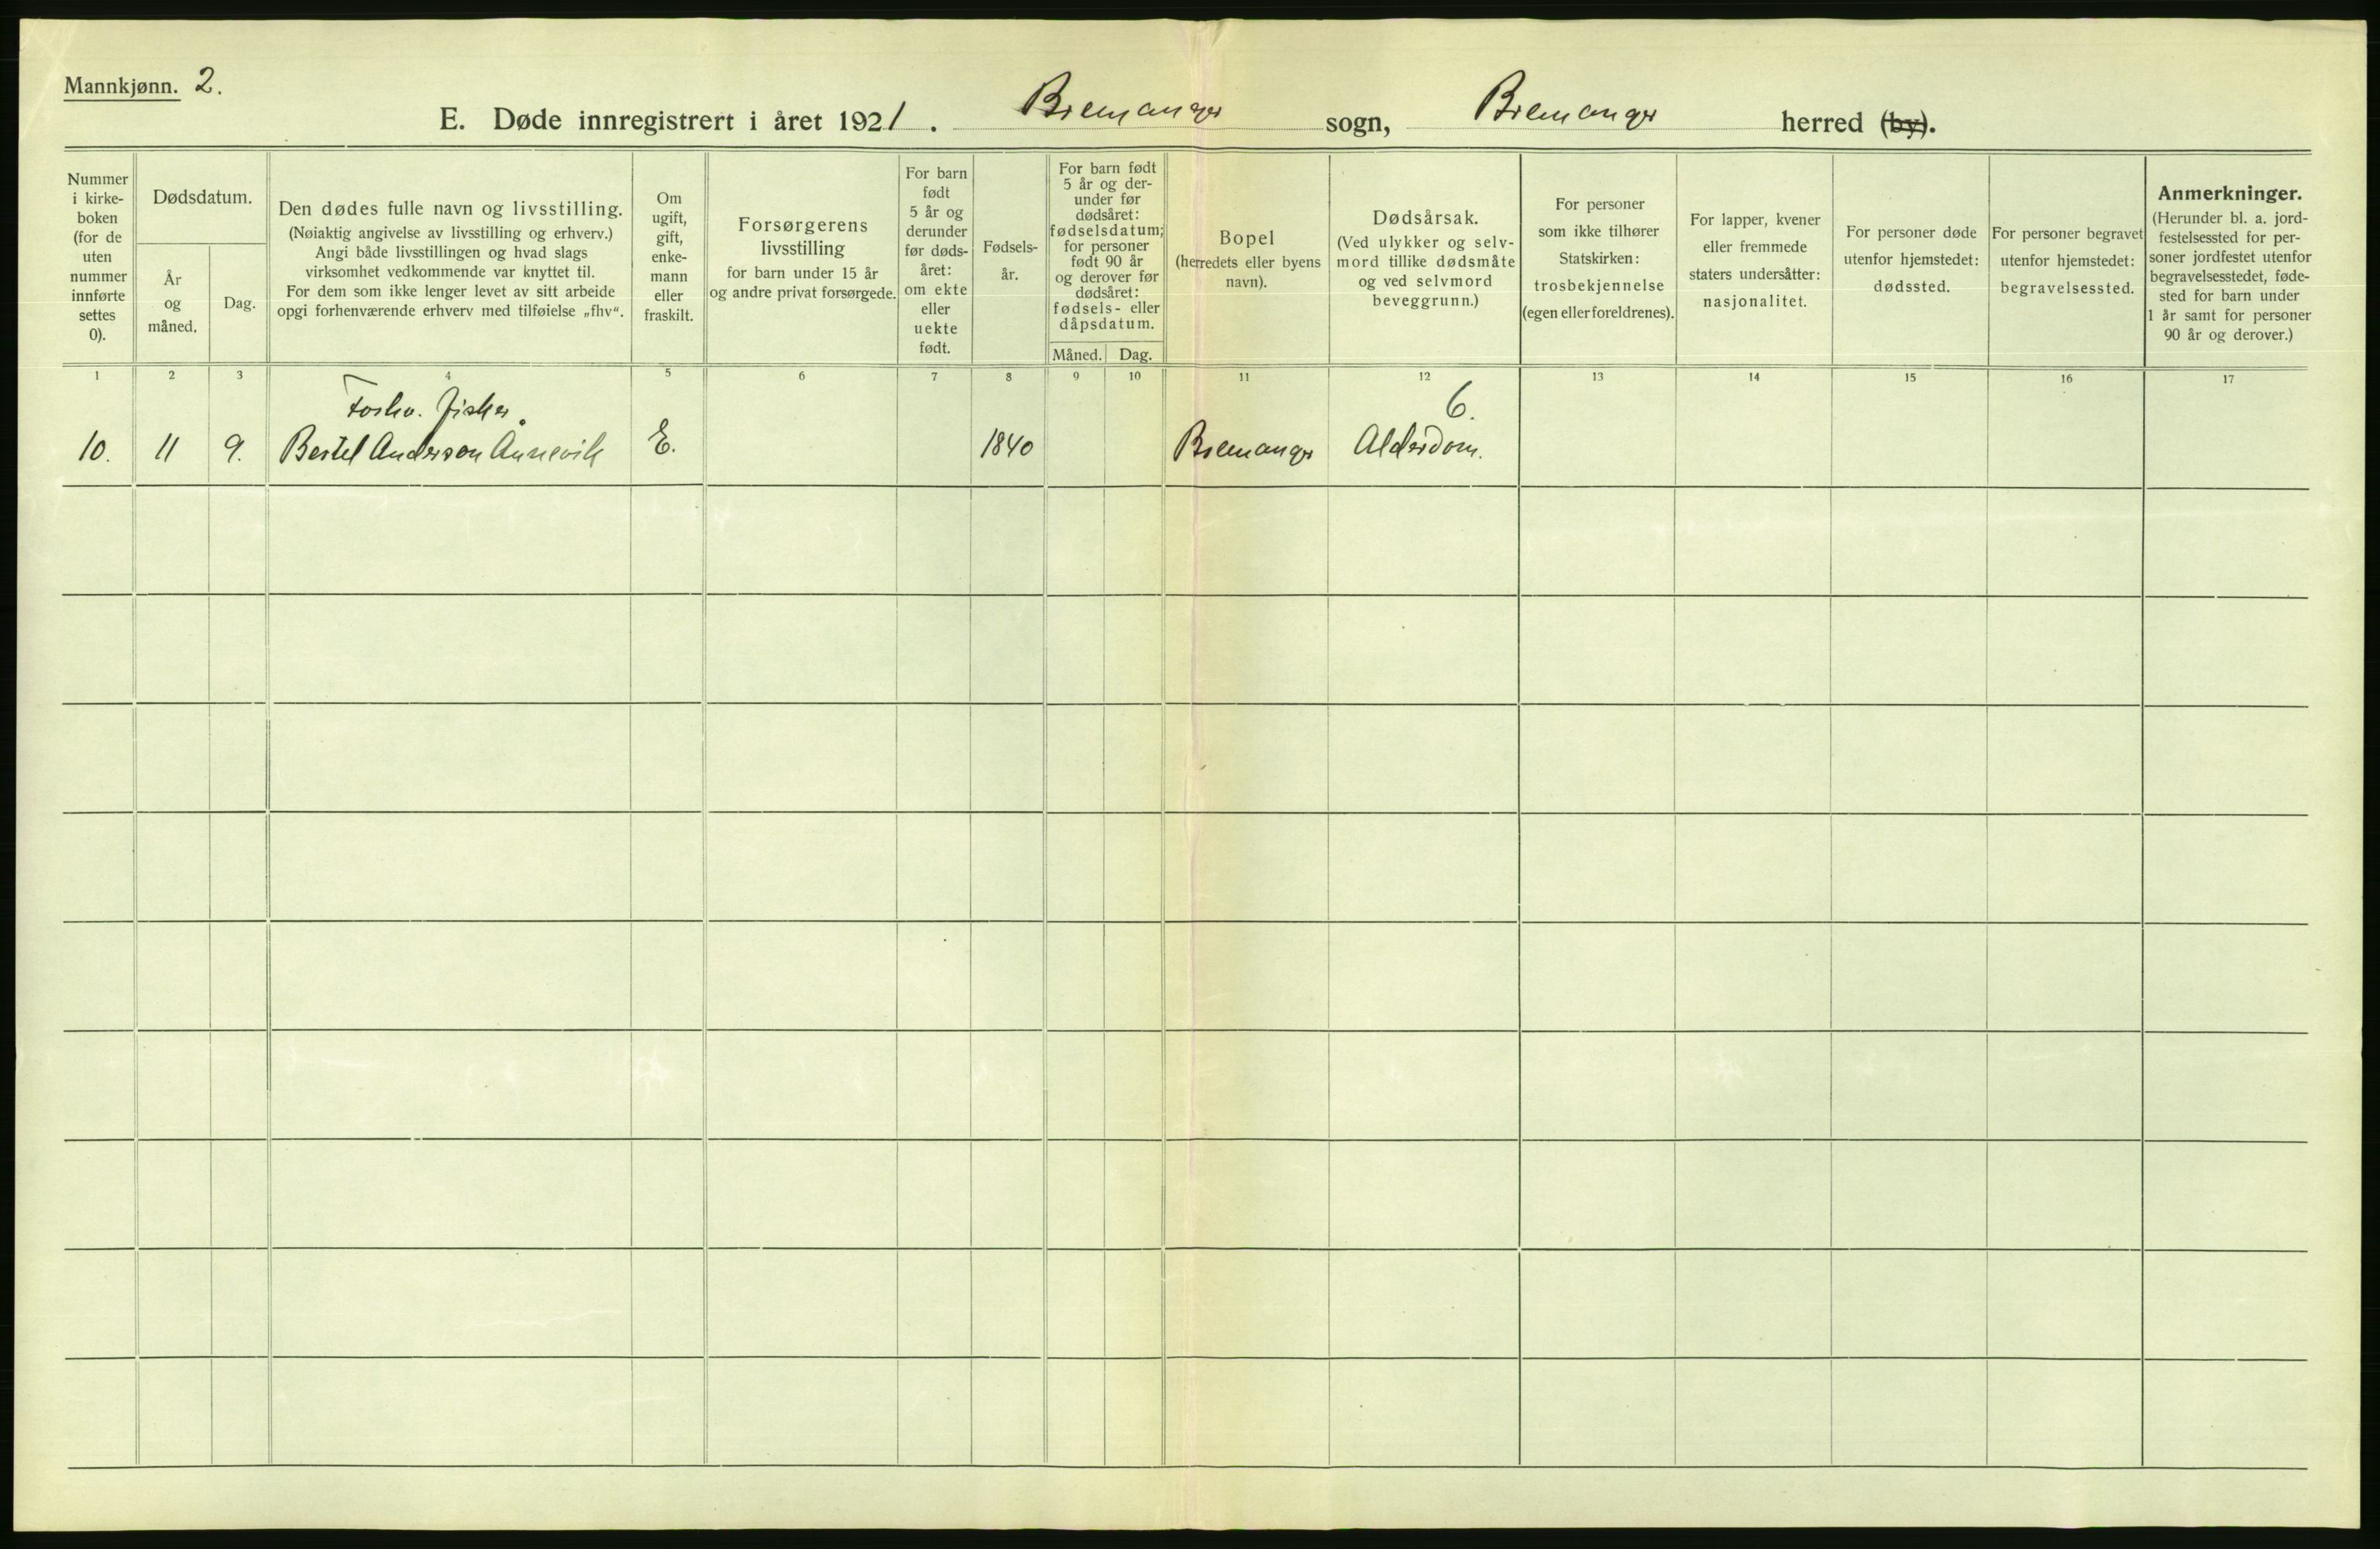 Mannkjønn. 2.
E. Døde innregistrert i året 1921. Bremanger sogn, Bremanger herred (by).
Nummer
i kirke-
boken
(for de
uten
nummer
innførte
settes
0).
Dødsdatum.
År
og
måned.
Dag.
Den dødes fulle navn og livsstilling.
(Nøiaktig angivelse av livsstilling og erhverv.)
Angi både livsstillingen og hvad slags
virksomhet vedkommende var knyttet til.
For dem som ikke lenger levet av sitt arbeide
opgi forhenværende erhverv med tilføielse „fhv“.
Om
ugift,
gift,
enke-
mann
eller
fraskilt.
Forsørgerens
livsstilling
for barn under 15 år
og andre privat forsørgede.
For barn
født
5 år og
derunder
før døds-
året:
om ekte
eller
uekte
født.
Fødsels-
år.
For barn født
5 år og der-
under før
dødsåret:
fødselsdatum;
for personer
født 90 år
og derover før
dødsåret:
fødsels- eller
dåpsdatum.
Måned. Dag.
Bopel
(herredets eller byens
navn).
Dødsårsak.
(Ved ulykker og selv-
mord tillike dødsmåte
og ved selvmord
beveggrunn.)
For personer
som ikke tilhører
Statskirken:
trosbekjennelse
(egen eller foreldrenes).
For lapper, kvener
eller fremmede
staters undersåtter:
nasjonalitet.
For personer døde
utenfor hjemstedet:
dødssted.
For personer begravet
utenfor hjemstedet:
begravelsessted.
Anmerkninger.
(Herunder bl. a. jord-
festelsessted for per-
soner jordfestet utenfor
begravelsesstedet, føde-
sted for barn under
1 år samt for personer
90 år og derover.)
1 2 3 4 5 6 7 8 9 10 11 12 13 14 15 16 17
Forhv. fisker 6.
10. 11 9. Bertel Anderson Ånnevik E. 1840 Bremanger Alderdom.